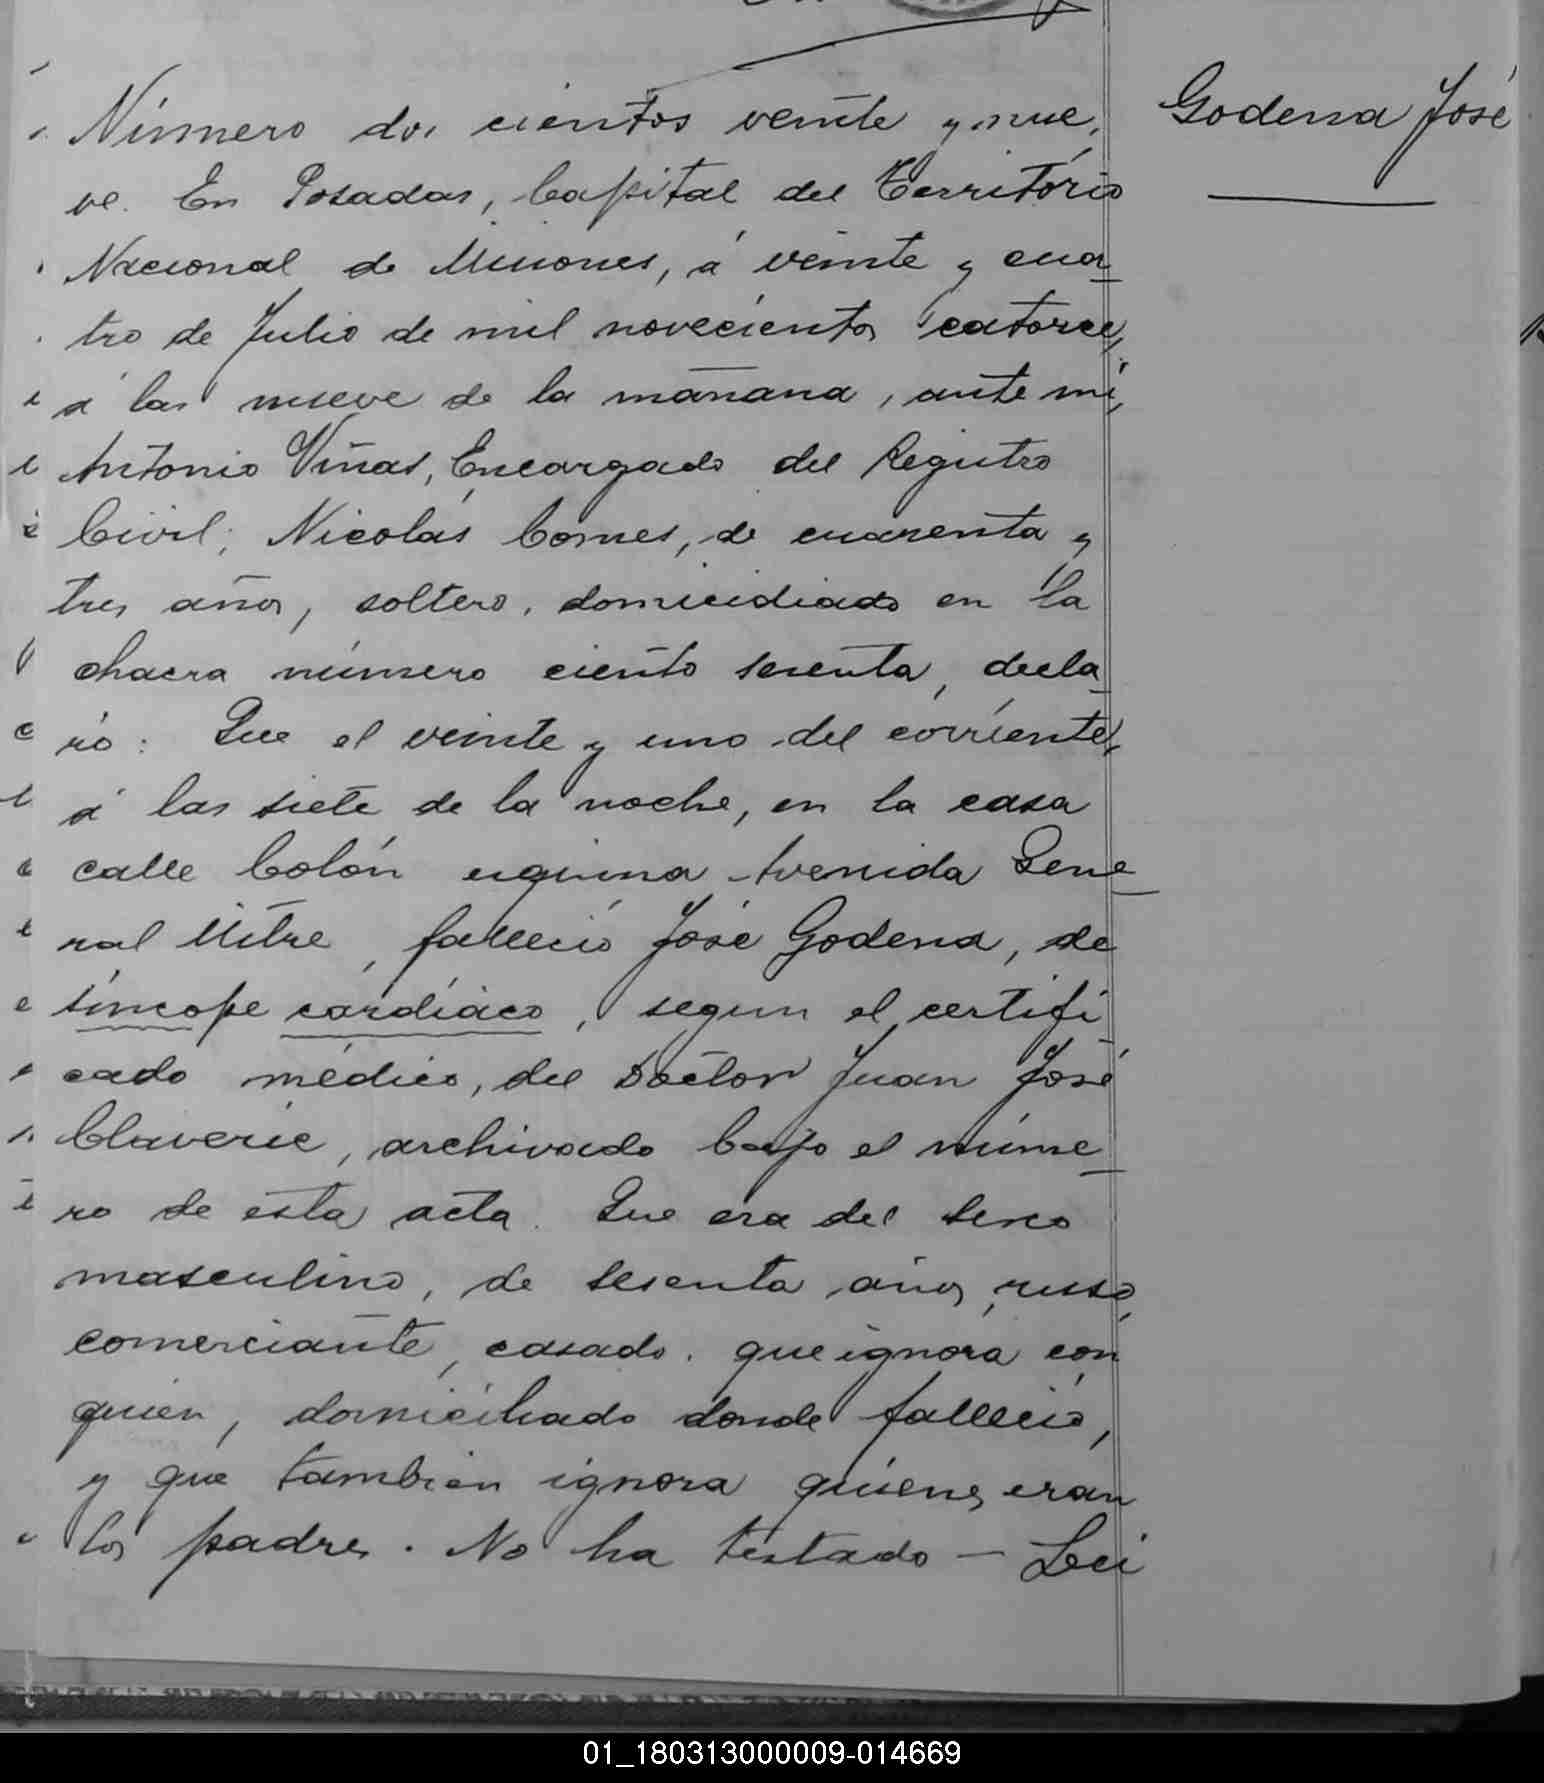 Godena José
Número dos cientos veinte y nue
ve. En Posadas, Capital del Território
Nacional de Misiones, á veinte y cua_
tro de Julio de mil novecientos catorce,
á las nueve de la mañana, ante mi,
Antonio Viñas, Encargado del Registro
Civil; Nicolás Comes, de cuarenta y
tres años, soltero, domicidiado en la
chacra número ciento sesenta, decla_
ró: Que el veinte y uno del corriente,
á las siete de la noche, en la casa
calle Colón esquina Avenida Gene_
ral Mitre, falleció José Godena, de
síncope cardíaco, segun el certifi_
cado médico, del Doctor Juan José
Claverie, archivado bajo el núme_
ro de esta acta. Que era del sexo
masculino, de sesenta años, ruso,
comerciante, casado, que ignora con
quien, domiciliado donde falleció,
y que tambien ignora quienes eran
los padres. No ha testado — Lei
01_180313000009-014669